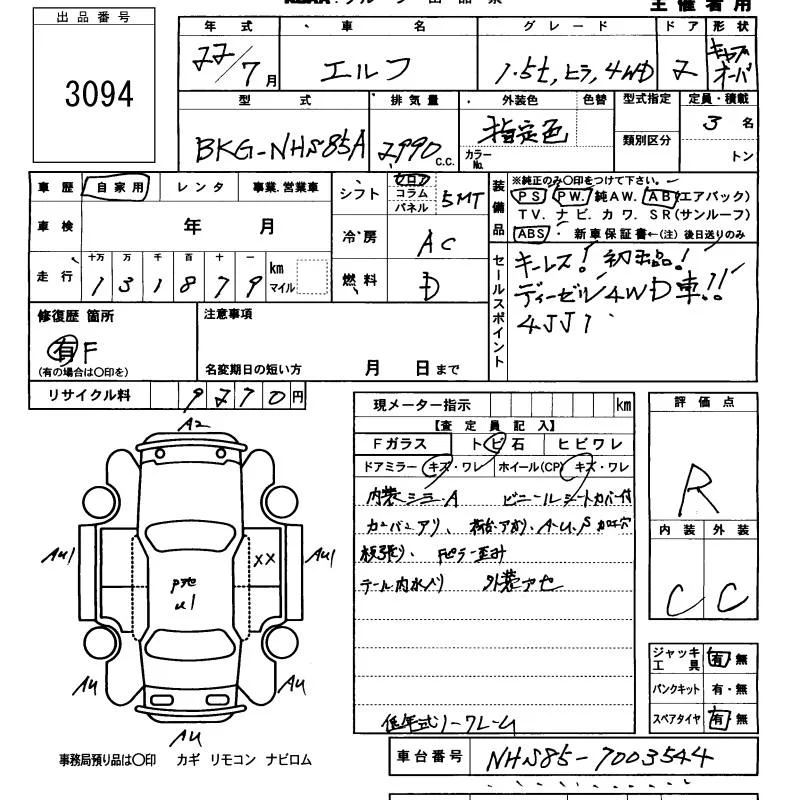 出品番号
3094
主催者用
年式 車名 グレード ドア 形状
22/7月 エルフ 1.5t,ヒラ,4WD 2 キャブオーバ
型式 排気量 外装色 色替 型式指定 定員・積載
BKG-NHS85A 2990 c.c. 指定色 カラーNo. 類別区分 3名
トン
車歴 自家用 レンタ 事業.営業車
車検 年 月
走行 十万 万 千 百 十 一
131879 km マイル
シフト フロア コラム パネル 5MT
冷房 AC
燃料 D
装備品
※純正のみ〇印をつけて下さい。
PS PW. 純AW. AB(エアバッグ)
TV. ナビ. カワ. SR(サンルーフ)
ABS 新車保証書←(注) 後日送りのみ
セールスポイント
キーレス! 初出品!
ディーゼル4WD車!!
4JJ1
修復歴 箇所
有 F
(有の場合は〇印を)
注意事項
名変期日の短い方 月 日まで
リサイクル料 9270円
現メーター指示 km
【査定員記入】
Fガラス トビ石 ヒビワレ
ドアミラー キズ・ワレ ホイール(CP) キズ・ワレ
内装シミ-A ビニールシートカバー付
カーバエアリ、 荷台.アオリ.A-U.S カロ穴
板張り、Fピラー歪み
テール内水入り 外装アセ
低年式フレーム
評価点
R
内装 外装
C C
ジャッキ工具 有・無
パンクキット 有・無
スペアタイヤ 有・無
A2
AU1
XX
AU1
U1
AU
AU
AU
事務局預り品は〇印 カギ リモコン ナビロム
車台番号 NHS85-7003544